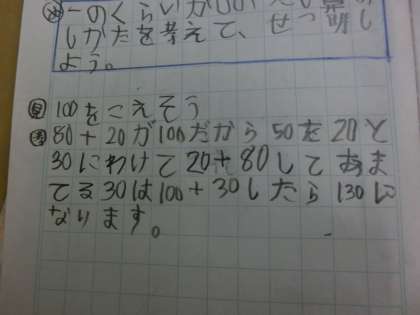 一のくらいが
しかたを考えて、せつ明し
よう。
見 100をこえそう
考 80+20が100だから50を20と
30にわけて20+80してあま
てる30は100+30したら130に
なります。